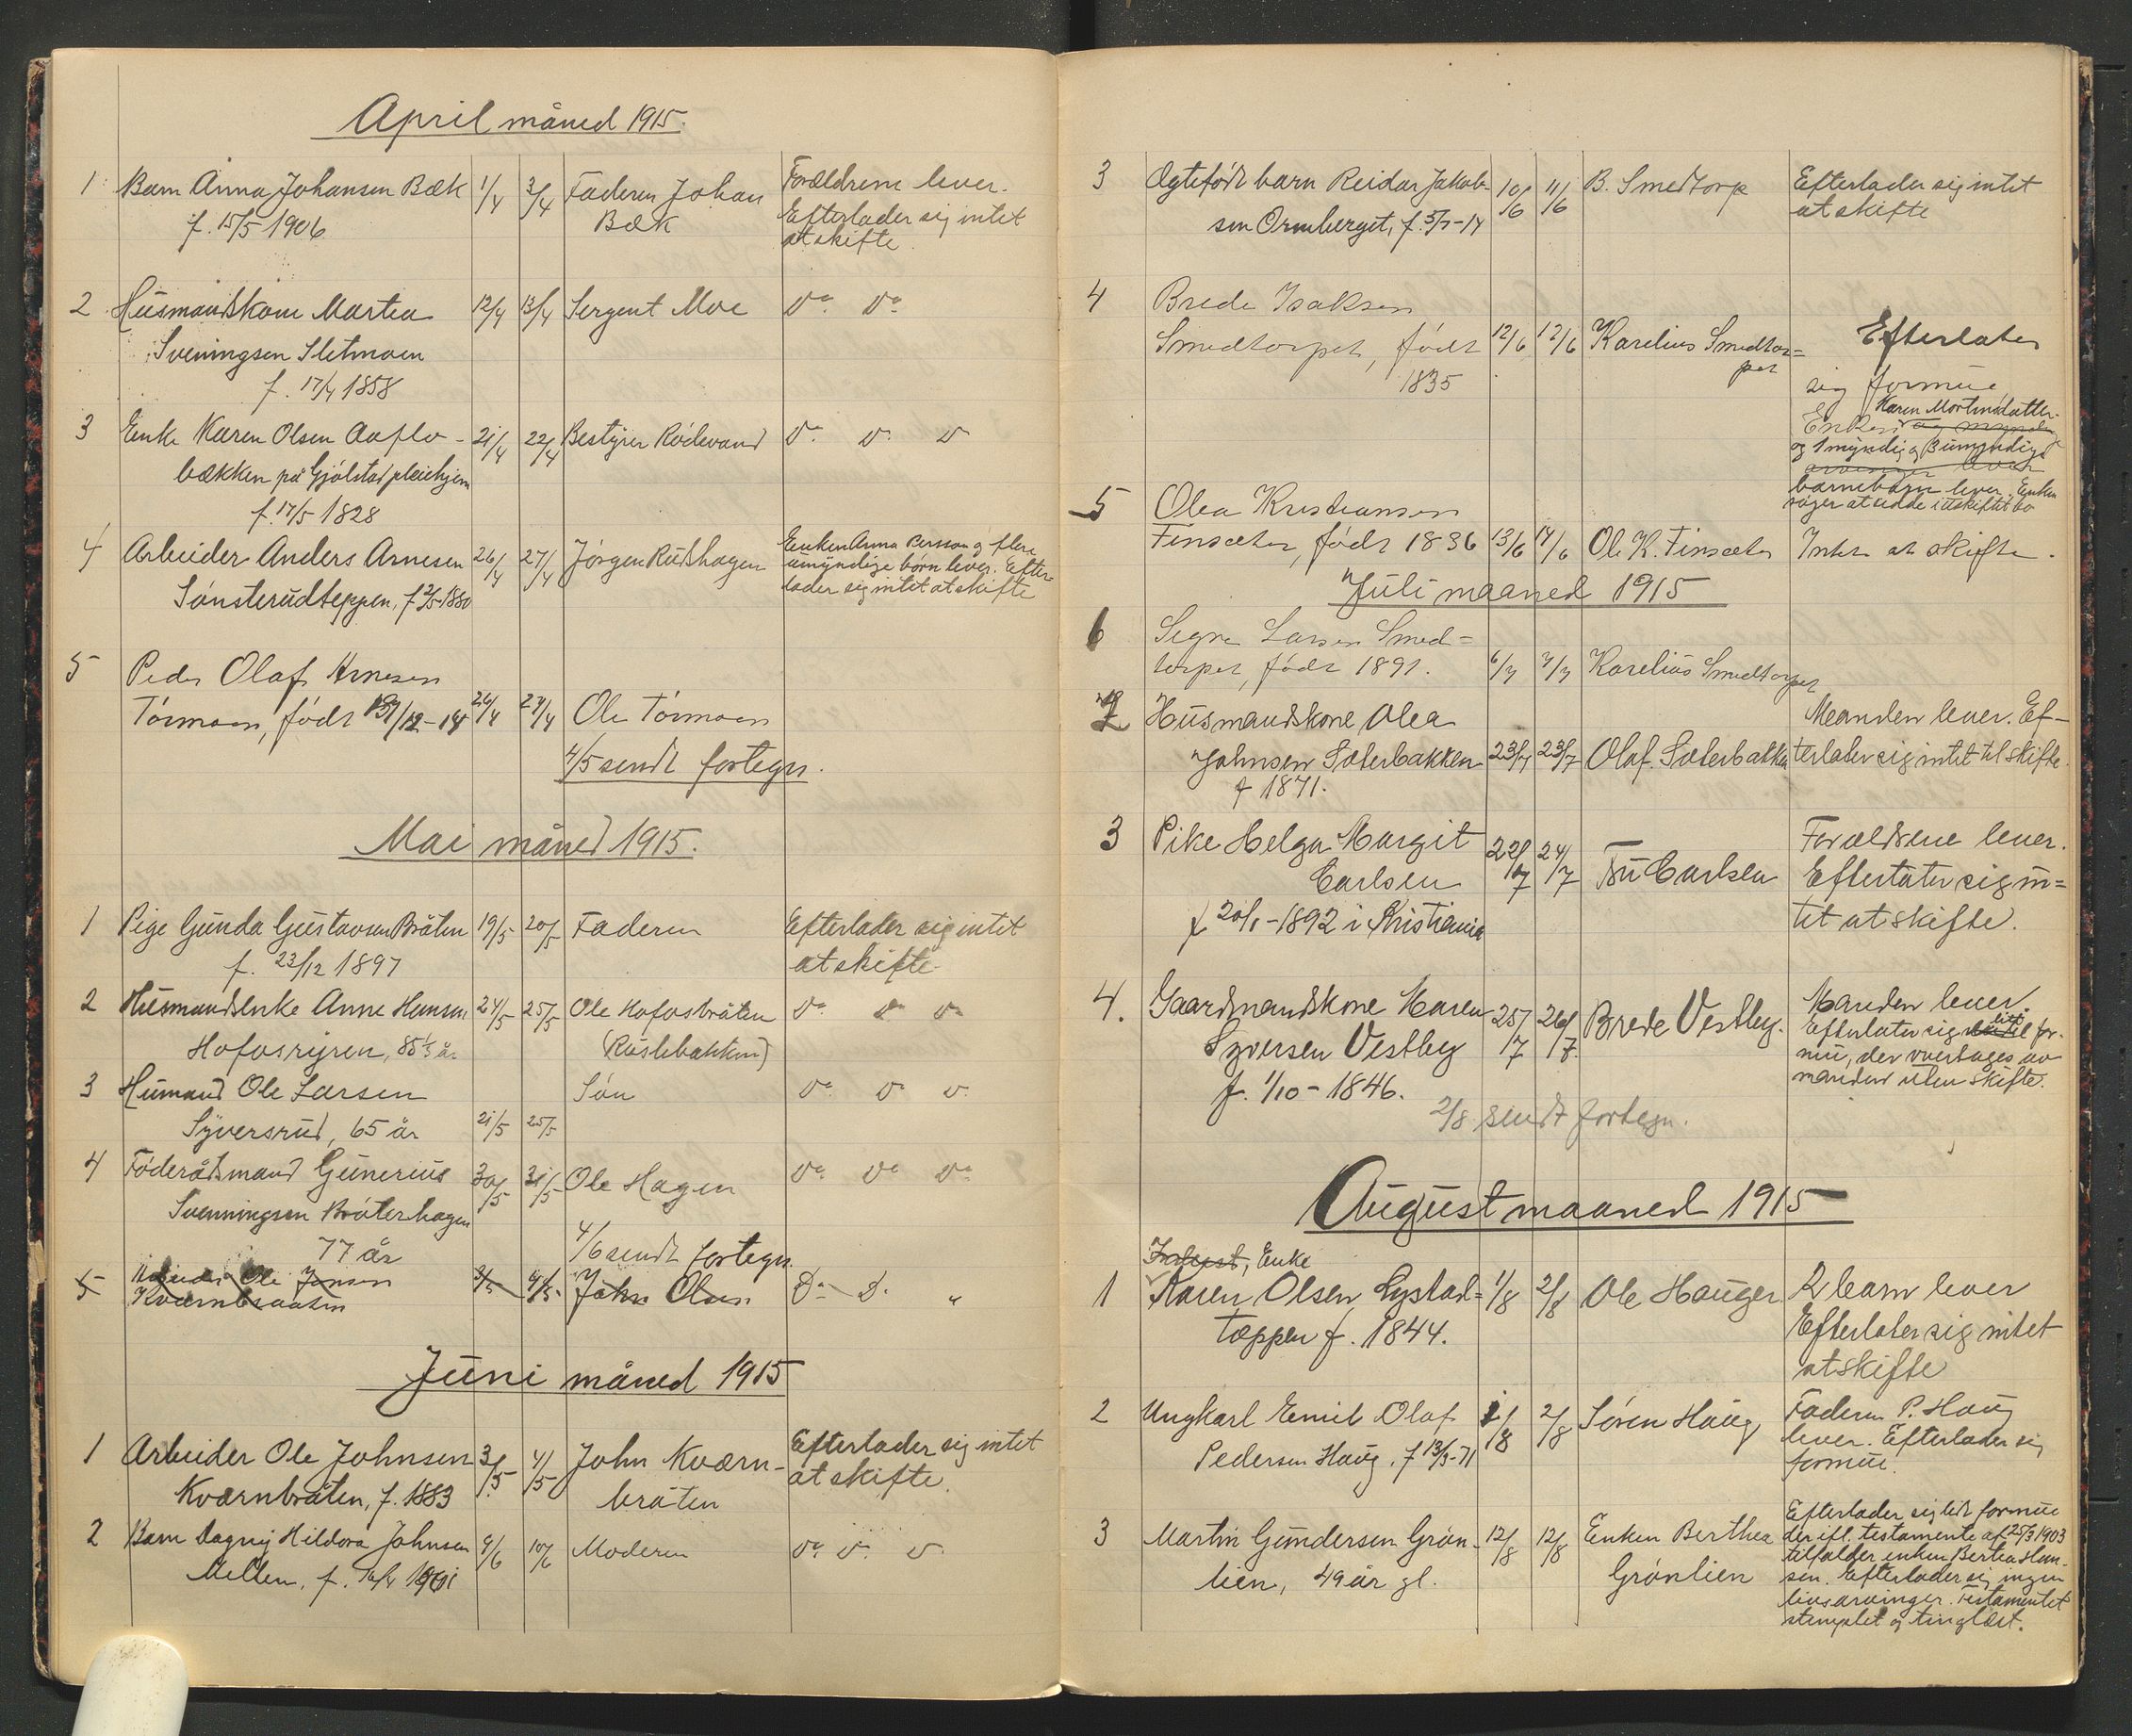 April måned 1915.
1 Barn Anna Johansen Bæk 1/4 3/4 Faderen Johan Forældrene lever.
f. 15/5 1906 Bæk Efterlader sig intet
at skifte.
2 Husmandskone Martea 12/4 13/4 Sergent Moe Do Do
Sveningsen Sletmoen
f. 17/4 1858
3 Enke Karen Olsen 21/4 22/4 Bestyrer Rødevand Do Do Do
bækken på Gjølstad pleiehjem
f. 17/5 1828
4 Arbeider Anders Arnesen 26/4 27/4 Jørgen Rudshagen Enken Anna Persson og flere
umyndige børn lever. Efter-
Sønsterudteppen, f. 2/5 1880 lader sig intet at skifte
5 Peder Olaf Arnesen
Tørmoen, født 14 26/4 27/4 Ole Tørmoen
4/5 sendt fortegn.
Mai måned 1915.
1 Pige Gunda Gustavsen Bråten 19/5 20/5 Faderen Efterlader sig intet
f. 23/12 1897 at skifte
2 Husmandsenke Anne Hansen 24/5 25/5 Ole Hofosbråten Do Do Do
Hofosryren, 85 1/3 år (Røslebakken)
3 Husmand Ole Larsen Søn Do Do Do
Syversrud, 65 år 21/5 25/5
4 Føderådsmand Gunerius 30/5 31/5 Ole Hagen Do Do Do
Svenningsen Bråterhagen
77 år 4/6 sendt fortegn.
5 Ole Jonsen 3/5 4/5 John Olsen D. D. "
Kværnbraaten
Juni måned 1915
1 Arbeider Ole Johnsen 3/5 4/5 John Kværn- Efterlader sig intet
Kværnbråten, f. 1883 bråten at skifte.
2 Barn Dagny Hildora Johnsen 9/6 10/6 Moderen Do Do Do
Mellem, f.
3 Ægtefødt barn Reidar Jakob- 10/6 11/6 B. Smedtorp Efterlader sig intet
sen Ormberget, f. 5/7-14 at skifte
4 Brede Isaksen
Smedtorpet, født 12/6 12/6 Karelius Smedtor= Efterlater
1835 pet sig formue
Karen Mortensdatter
Enken og
og 1 myndig og 3 umyndige
arvinger lever
barnebarn lever. Enken
søger at sidde i uskiftet bo
5 Olea Kristiansen
Finsæter, født 1836 13/6 14/6 Ole K. Finsæter Intet at skifte.
Juli maaned 1915
6 Signe Larsen Smed=
torpet, født 1891. 6/7 7/7 Karelius Smedtorpet
2 Husmandskone Olea Manden lever. Ef-
Johnsen Sæterbakken 23/7 23/7 Olaf Sæterbakken terlater sig intet til skifte.
f 1871.
3 Pike Helga Margit 22/7 24/7 Fru Carlsen Forældrene lever.
Carlsen Efterlater sig in=
f 20/1-1892 i Kristiania tet at skifte.
4. Gaardmandskone Maren 25/7 26/7 Brede Vestby. Manden lever.
Syversen Vestby Efterlater sig litt for-
mue, der overtages av
f. 1/10-1846. manden uten skifte.
2/8 sendt fortegn.
August maaned 1915
Inderst, Enke
1 Karen Olsen Lystad= 1/8 2/8 Ole Hauger 2 barn lever
tæppen f. 1844. Efterlater sig intet
at skifte
2 Ungkarl Emil Olaf 1/8 2/8 Søren Haug Faderen P. Haug
Pedersen Haug. f 13/3-71 lever. Efterlader sig
formue.
3 Martin Gundersen Grøn- 12/8 12/8 Enken Berthea Efterlader sig lidt formue
der ifl. testamente af 25/3 1903
lien, 49 år gl. Grønlien tilfalder enken Bertea Han-
sen. Efterlader sig ingen
livsarvinger. Testamentet
stemplet og tinglæst.